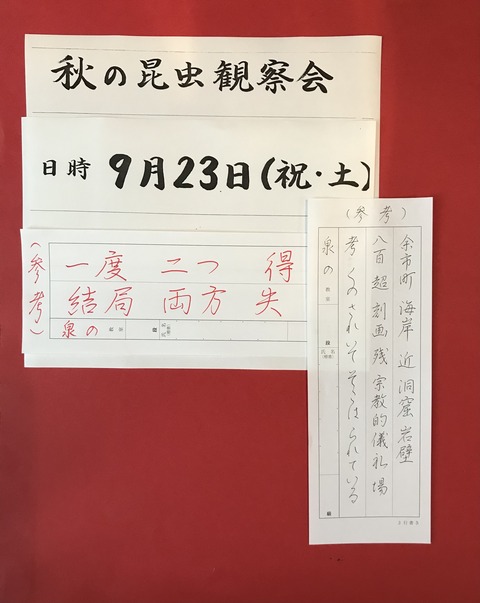 秋の昆虫観察会
日時 9月23日(祝・土)
(参考)
一度 二つ 得
結局 両方 失
泉の
(参考)
余市町 海岸 近 洞窟 岩壁
八百 超 刻画 残 宗教的儀礼場
泉の